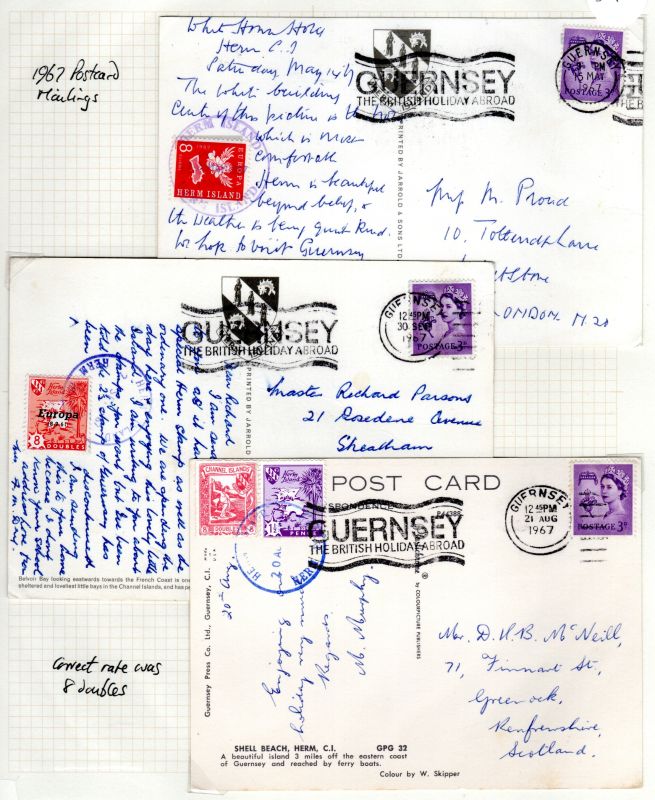 1967 Postcard
Mailings
White House Hotel
Herm C.I
Saturday May 14th
The white building
Centre of this picture is the
which is most
comfortable
Herm is beautiful
beyond belief, &
the weather is being quite kind.
We hope to visit Guernsey
HERM ISLAND
8
EUROPA
HERM ISLAND
GUERNSEY
THE BRITISH HOLIDAY ABROAD
GUERNSEY
PM
15 MAY
POSTAGE 3D
PRINTED BY JARROLD & SONS LTD
M. Proud
10,
LONDON N.20
special Herm stamp as well as the
ordinary one. We are spending the
day here & enjoying this lovely little
island. I am writing to you about
the stamps you want but have been
told the 2½ stamp of Guernsey has
been
discontinued
I am sending
this to your home
because I don't
know your school
address.
Dear Richard
I am send
Europa
8 DOUBLES
GUERNSEY
THE BRITISH HOLIDAY ABROAD
GUERNSEY
12 45PM
30 SEP
1967
POSTAGE 3D
PRINTED BY JARROLD
Master Richard Parsons
21 Rosedene Avenue
Streatham
Belvoir Bay looking eastwards towards the French Coast is one
sheltered and loveliest little bays in the Channel Islands, and has
POST CARD
CHANNEL ISLANDS
8 DOUBLES 8
Herm Island
1½ PENCE
HERM
GUERNSEY
THE BRITISH HOLIDAY ABROAD
GUERNSEY
12 45PM
21 AUG
1967
POSTAGE 3D
Guernsey Press Co. Ltd., Guernsey, C.I.
by COLOURPICTURE PUBLISHERS
20th Aug
Enjoying
holiday very much
Regards.
M. Murphy.
Mr. D.H.B. McNeill,
71, Finnart St,
Greenock,
Renfrewshire,
Scotland.
SHELL BEACH, HERM, C.I. GPG 32
A beautiful island 3 miles off the eastern coast
of Guernsey and reached by ferry boats.
Colour by W. Skipper
Correct rate was
8 doubles